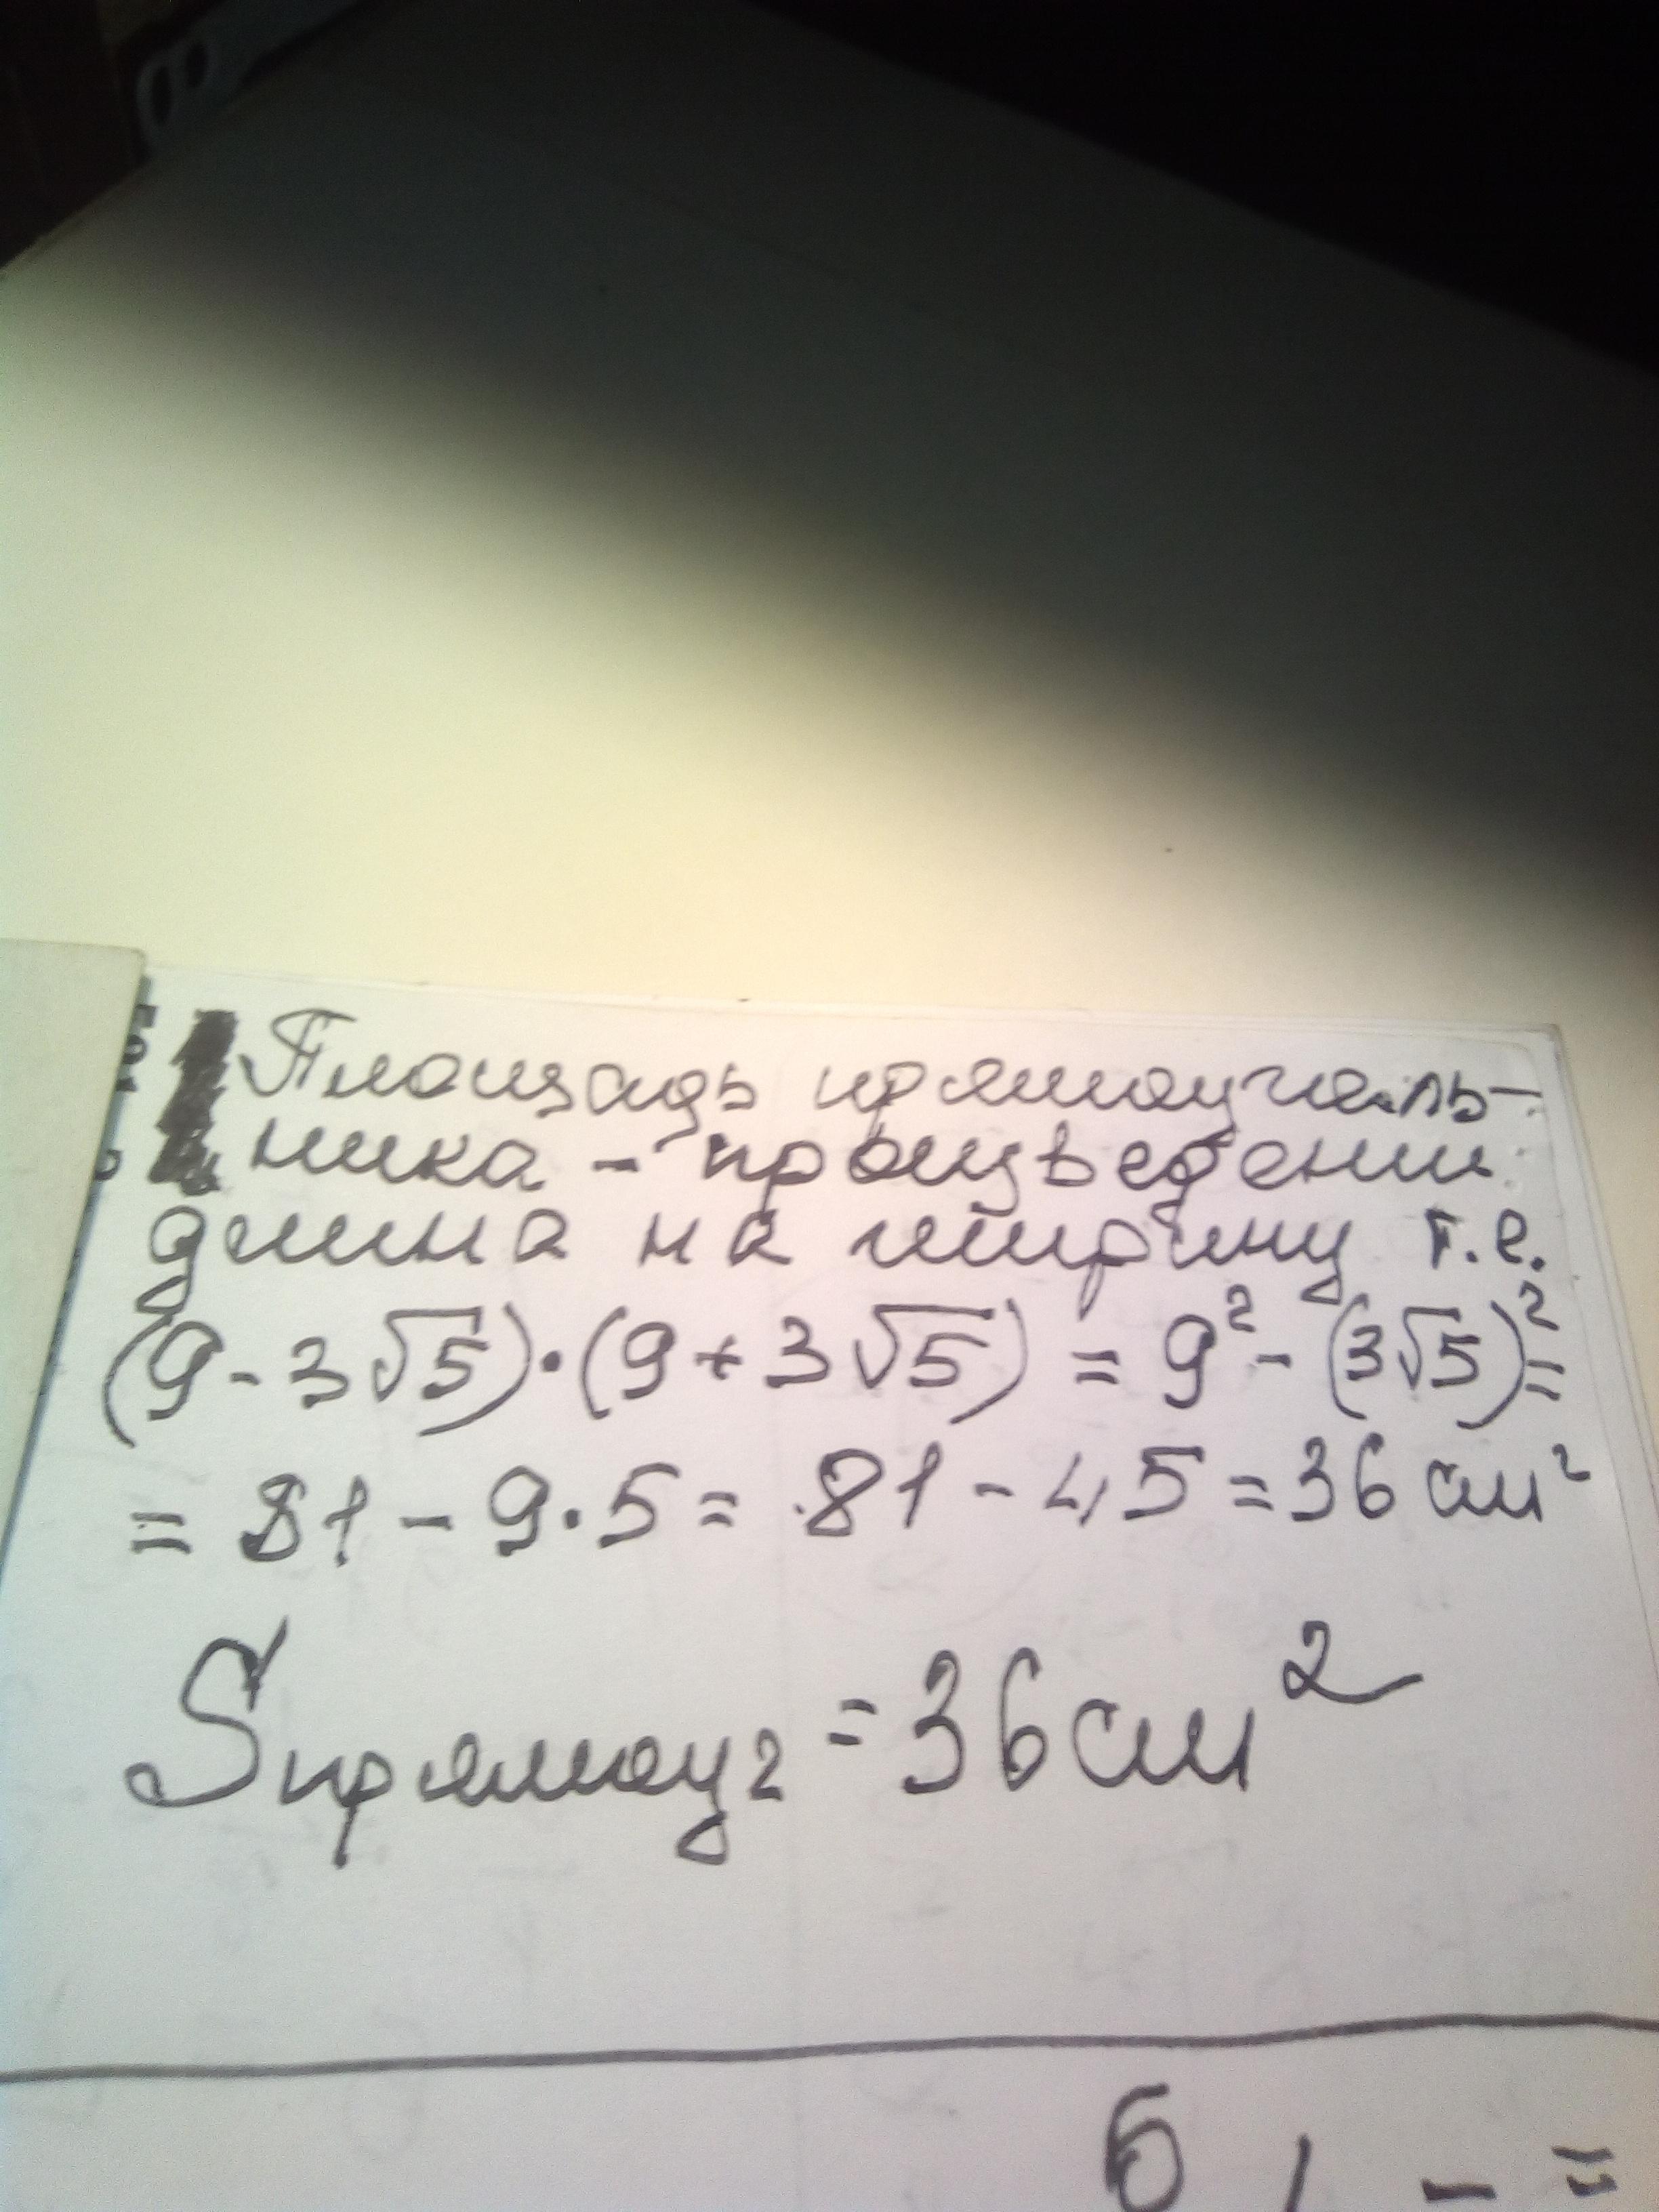 Площадь прямоуголь-
ника - произведении
длина на ширину т.е.
(9 - 3√5)·(9 + 3√5) = 9² - (3√5)² =
= 81 - 9·5 = 81 - 45 = 36 см²
Sпрямоуг = 36 см²